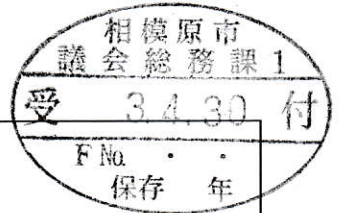 相模原市
議会総務課1
受 3.4.30 付
F No. ・ ・
保存 年